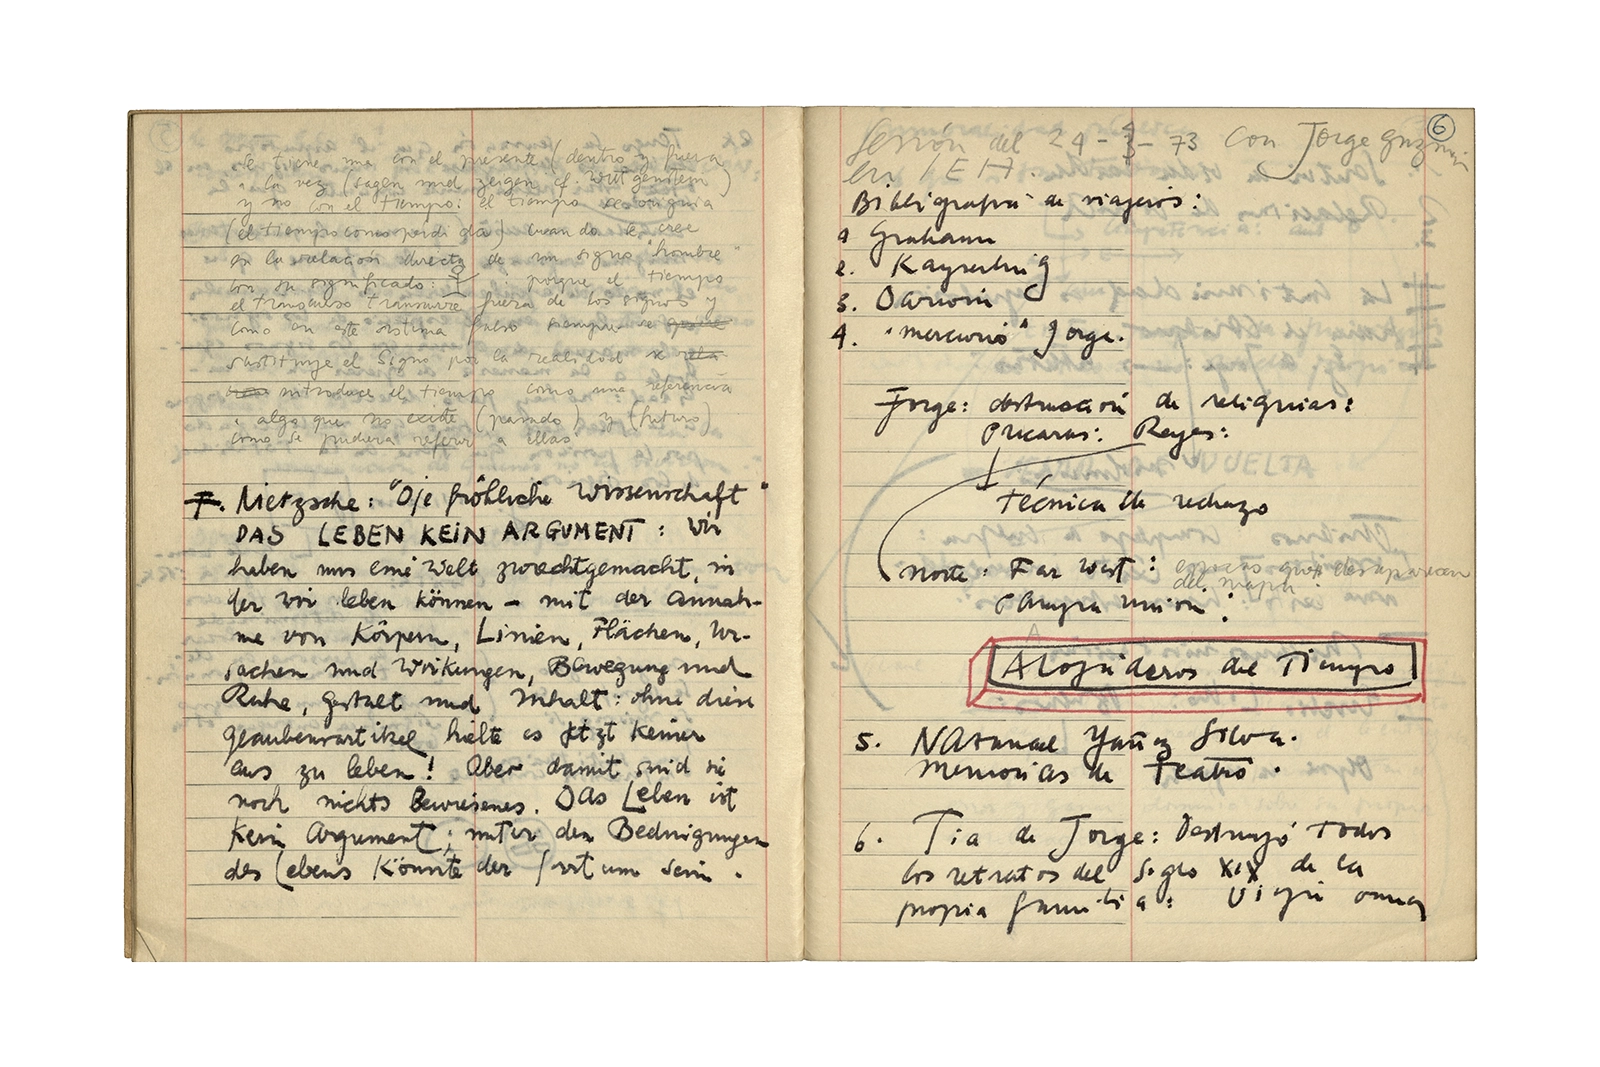 5
se tiene una con el presente (dentro y fuera
a la vez (sagen und zeigen cf. Wittgenstein)
y no con el tiempo: el tiempo
(el tiempo como perdida) cuando se cree
en la relación directa de un signo "hombre"
con su significado: porque el tiempo
el transcurso transcurre fuera de los signos y
como en este sistema falso siempre se
sustituye el signo por la realidad se
introduce el tiempo como una referencia
a algo que no existe (pasado) y (futuro)
como se pudiera referir a ellas
7. Nietzsche: "Die fröhliche Wissenschaft"
DAS LEBEN KEIN ARGUMENT: Wir
haben uns eine Welt zurechtgemacht, in
der wir leben können – mit der Annah-
me von Körpern, Linien, Flächen, Ur-
sachen und Wirkungen, Bewegung und
Ruhe, Gestalt und Inhalt: ohne diese
Glaubensartikel hielte es jetzt keiner
aus zu leben! Aber damit sind sie
noch nichts Bewiesenes. Das Leben ist
kein Argument; unter den Bedingungen
des Lebens könnte der Irrtum sein.
6
Sesión del 24-4-73 con Jorge Guzmán
en IEH
Bibligrafía de viajeros:
1 Grahann
2. Kayserling
3. Darwin
4. "mercurio" Jorge.
Jorge: destrucción de reliquias:
Pucaras: Reyes:
Técnica de rechazo
norte: Far west: espacio que desaparecen
del mapa
Pampa Unión:
Alojaderos del Tiempo
5. NAtanael Yañez Silva.
memorias de Teatro.
6. Tia de Jorge: Destruyó todos
los retratos del Siglo XIX de la
propia familia: Vieju